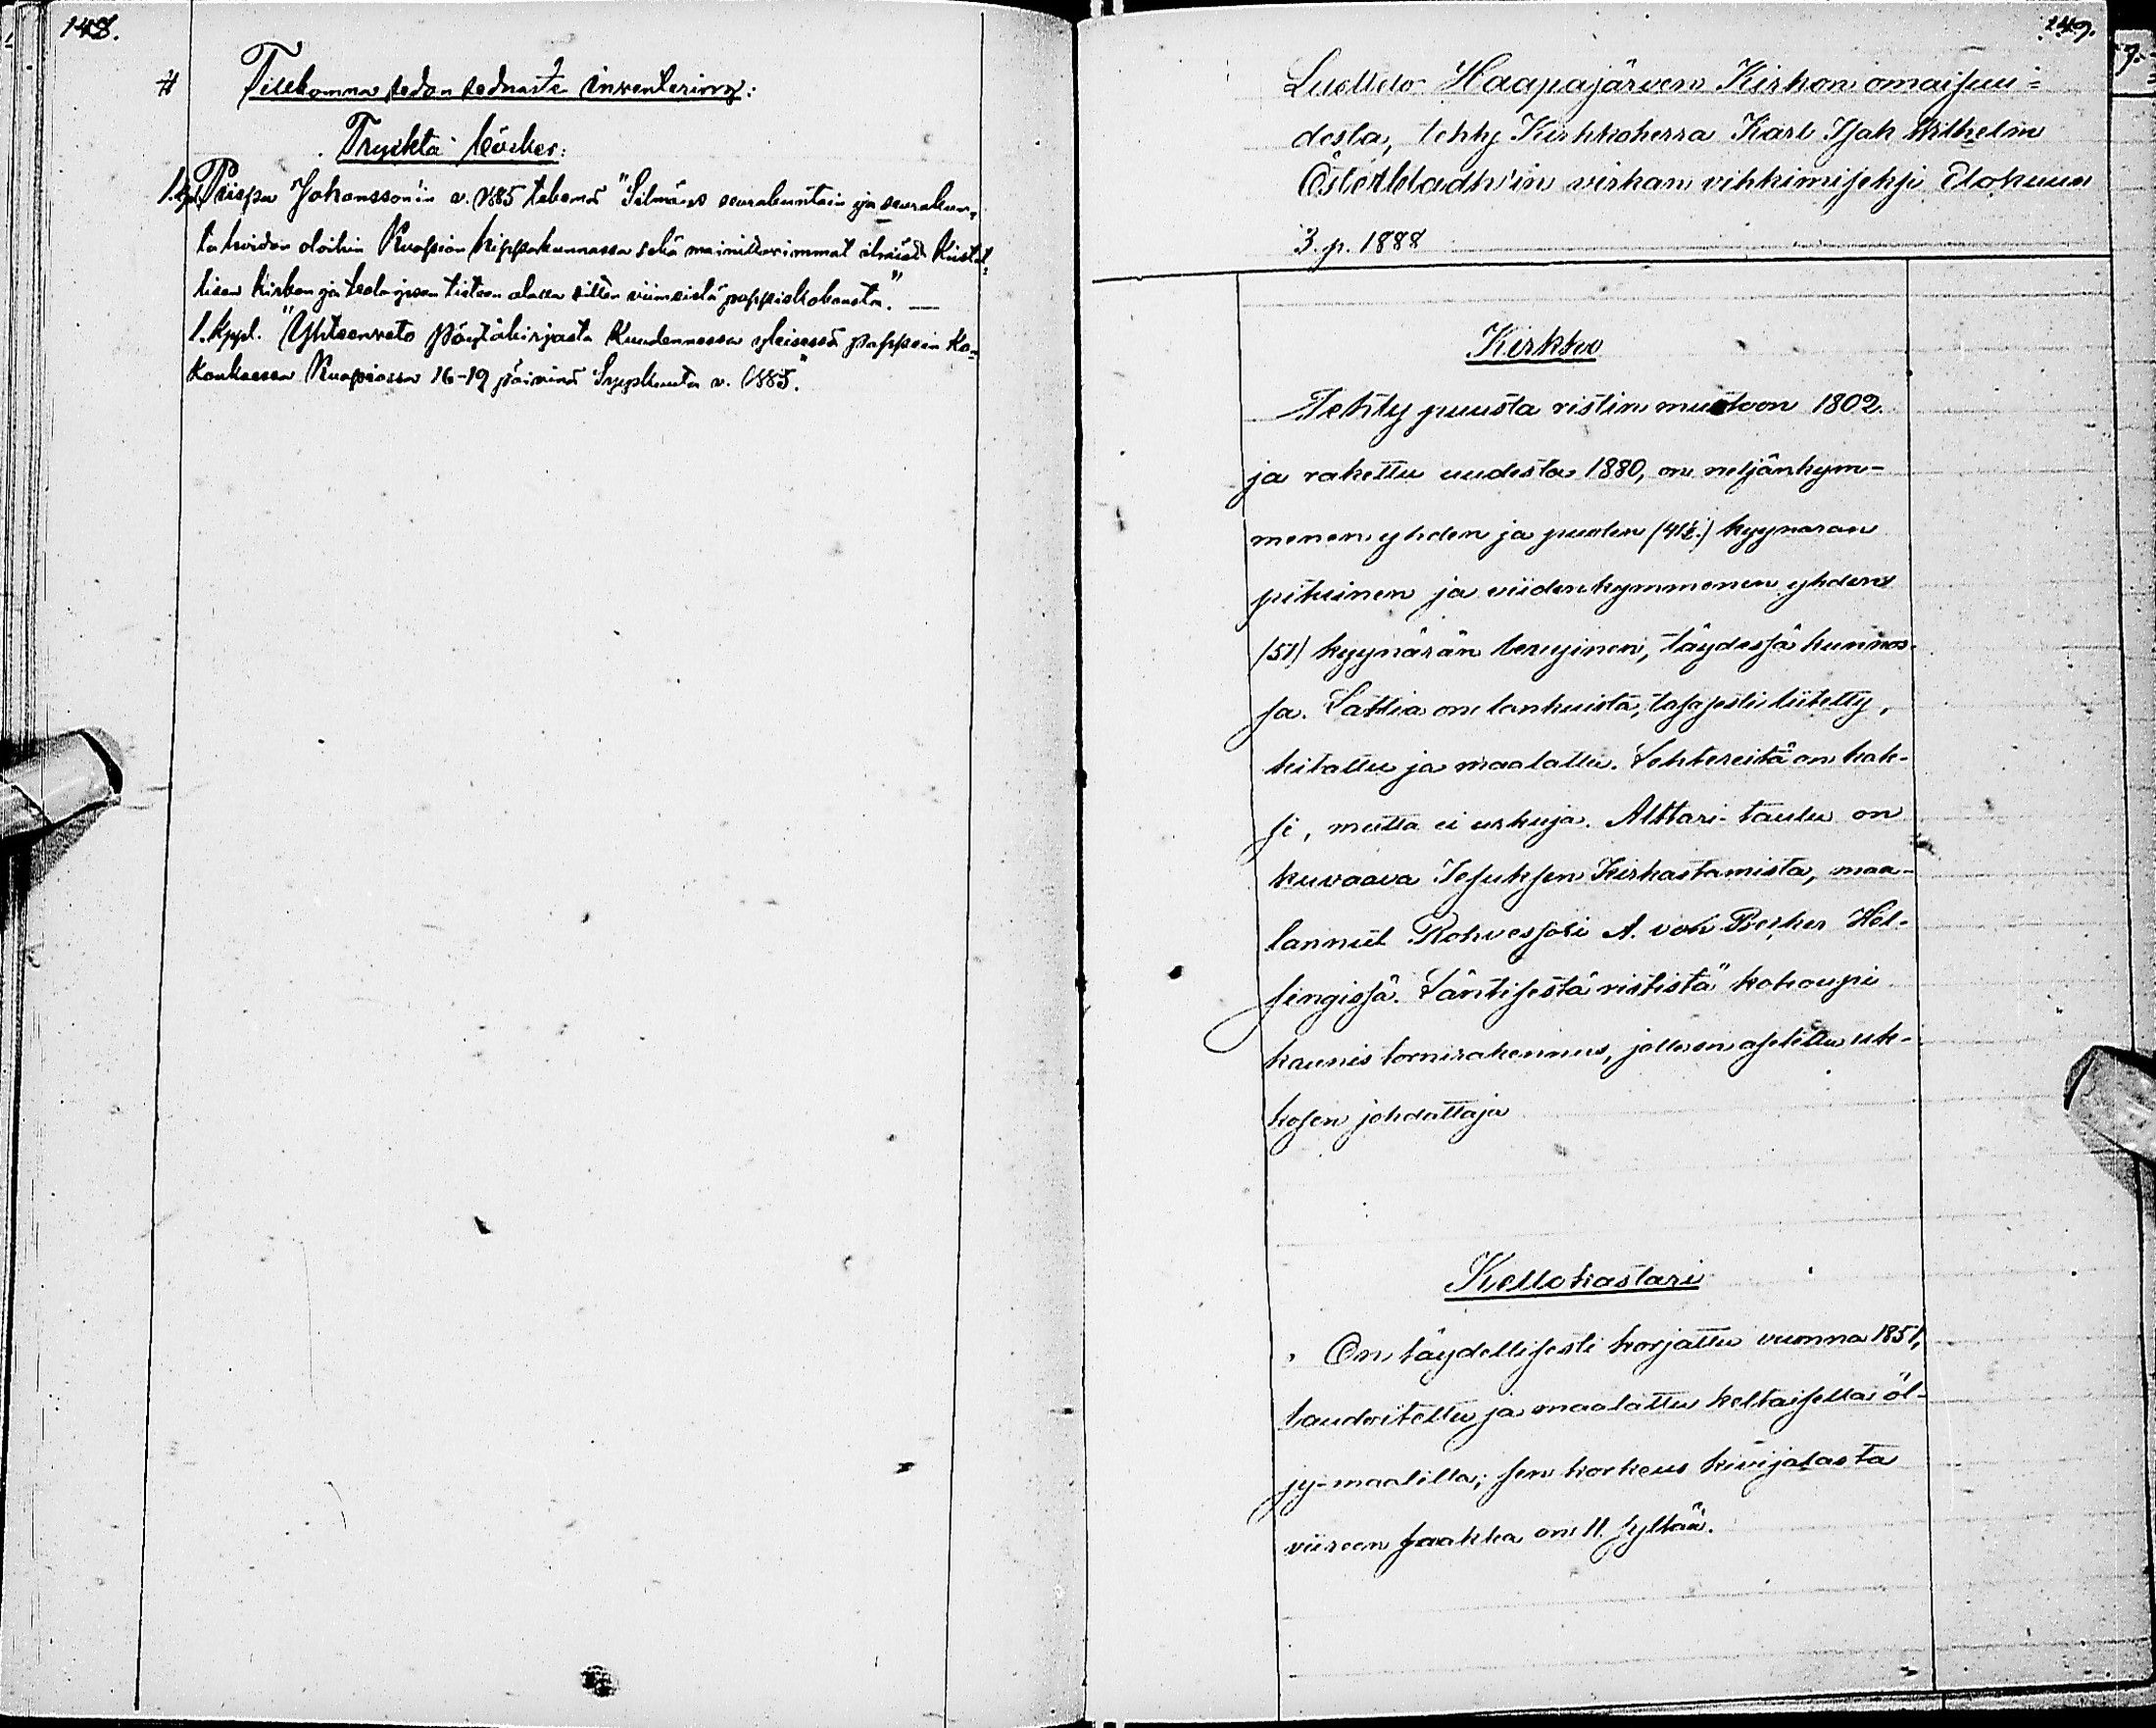 148.
# Tillkomna sedan sednaste inventering:
Tryckta böcker:
1. kpl. Piispa Johansson'in v. 1885 tekemä "Silmäys seurakuntain ja seurakun-
ta hoidon oloihin Kuopion hippakunnassa sekä mainittavimmat ilmiöt kristil-
lisen kirkon ja teologisen tieteen alalla sitten viimeistä pappiskokousta." —
1. kppl. "Yhteenveto Pöytäkirjasta Kuudennessa yleisessä pappein ko-
kouksessa Kuopiossa 16-19 päivinä Syyskuuta v. 1885."
149.
Luettelo Haapajärven Kirkon omaisuu-
desta, tehty Kirkkoherra Karl Isak Wilhelm
Österbladh'in virkan vihkimiseksi Elokuun
3. p. 1888
Kirkko
Tehty puusta ristin muotoon 1802.
ja rakettu uudesta 1880, on neljänkym-
menen yhden ja puolen (41½.) kyynärän
pituinen ja viidenkymmenen yhden
(51) kyynärän levyinen, täydessä kunnos-
sa. Lattia on lankuista, tasasesti liitetty,
kitattu ja maalattu. Lehtereitä on kak-
si, mutta ei urkuja. Alttari-taulu on
kuvaava Jesuksen Kirkastamista, maa-
lannut Rohvessori A. von Becker Hel-
singissä. Läntisestä rististä kohoupi
kaunis tornirakennus, jolle on asetettu uk-
kosen johdattaja
Kellokastari
On täydellisesti korjattu vuonna 1851,
laudoitettu ja maalattu keltaisella öl-
jy-maalilla; sen korkeus kivijalasta
viireen saakka on 11. syltää.